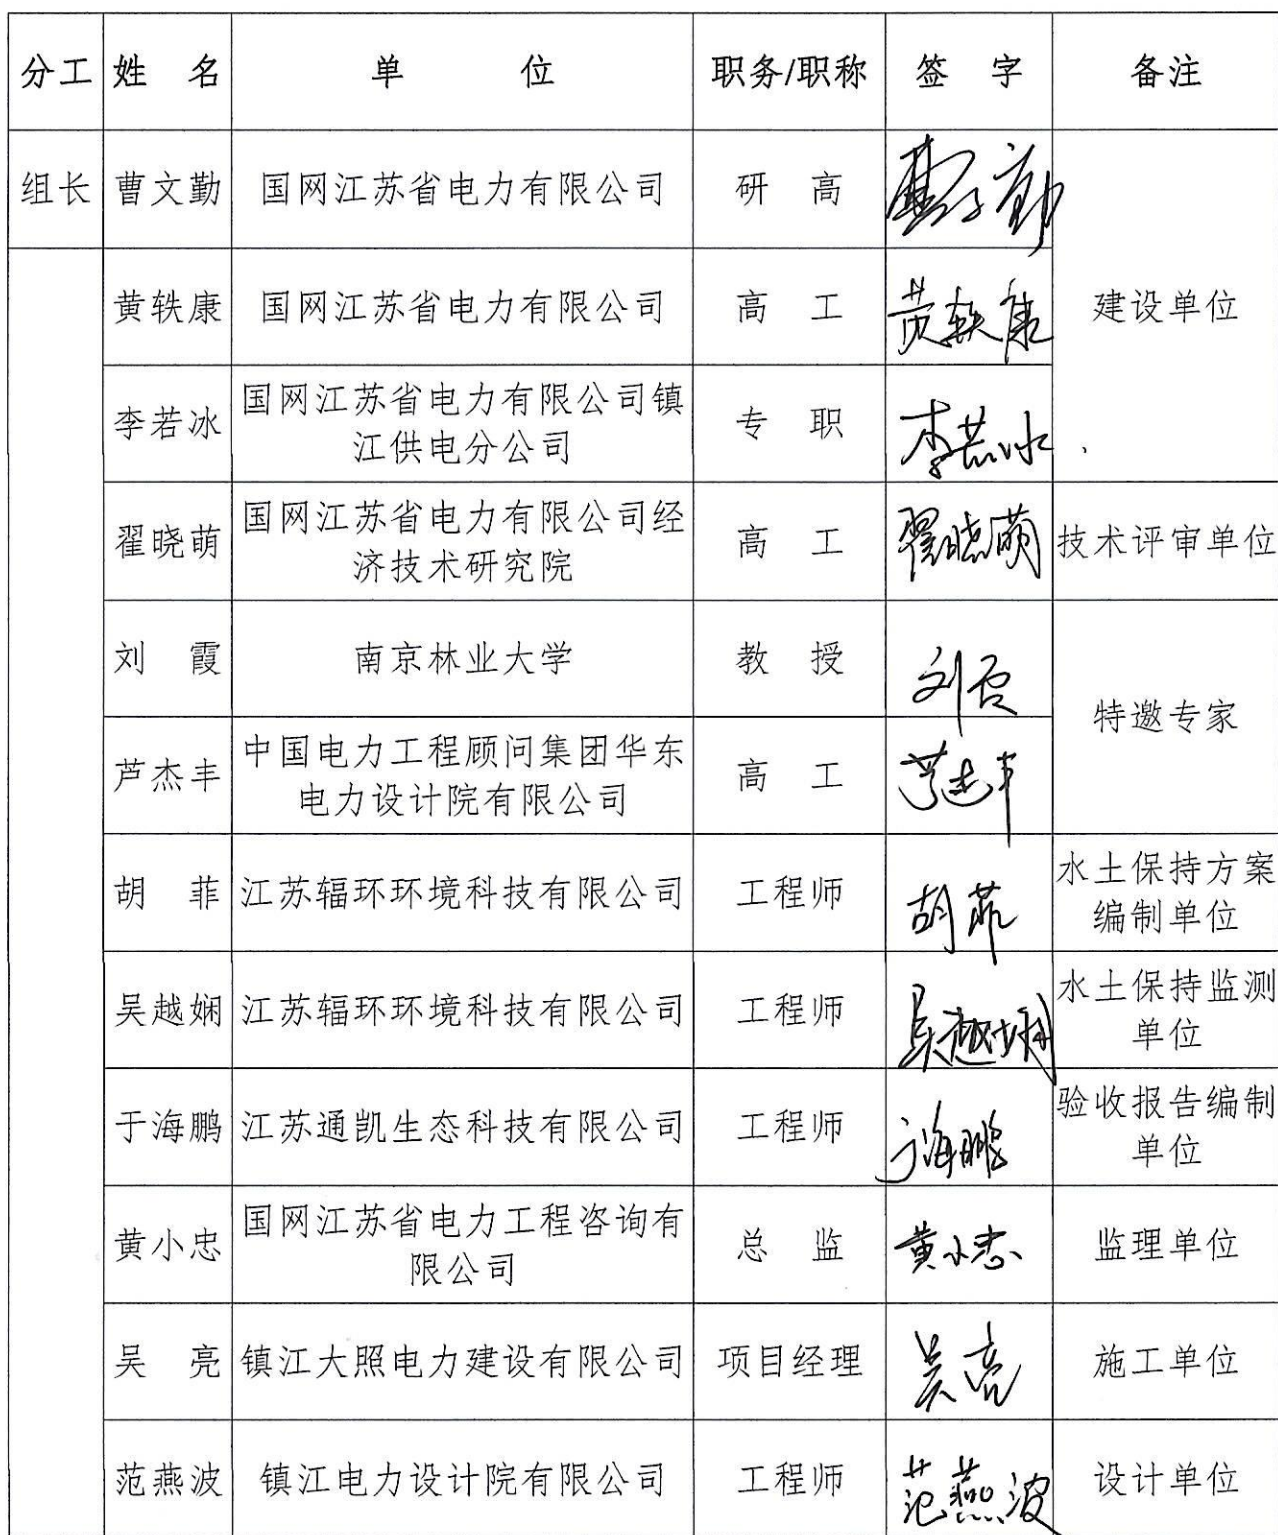 分工 姓 名 单 位 职务/职称 签 字 备注
组长 曹文勤 国网江苏省电力有限公司 研 高 曹文勤
黄轶康 国网江苏省电力有限公司 高 工 黄轶康 建设单位
李若冰 国网江苏省电力有限公司镇
江供电分公司 专 职 李若冰
翟晓萌 国网江苏省电力有限公司经
济技术研究院 高 工 翟晓萌 技术评审单位
刘 霞 南京林业大学 教 授 刘霞
特邀专家
芦杰丰 中国电力工程顾问集团华东
电力设计院有限公司 高 工 芦杰丰
胡 菲 江苏辐环环境科技有限公司 工程师 胡菲 水土保持方案
编制单位
吴越娴 江苏辐环环境科技有限公司 工程师 吴越娴 水土保持监测
单位
于海鹏 江苏通凯生态科技有限公司 工程师 于海鹏 验收报告编制
单位
黄小忠 国网江苏省电力工程咨询有
限公司 总 监 黄小忠 监理单位
吴 亮 镇江大照电力建设有限公司 项目经理 吴亮 施工单位
范燕波 镇江电力设计院有限公司 工程师 范燕波 设计单位